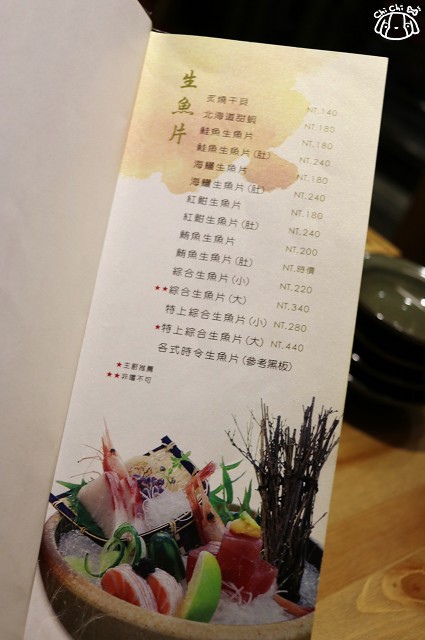 Chi Chi Boi
生魚片
炙燒干貝 NT.140
北海道甜蝦 NT.180
鮭魚生魚片 NT.180
鮭魚生魚片(肚) NT.240
海鱺生魚片 NT.180
海鱺生魚片(肚) NT.240
紅魽生魚片 NT.180
紅魽生魚片(肚) NT.240
鮪魚生魚片 NT.200
鮪魚生魚片(肚) NT.時價
綜合生魚片(小) NT.220
★★綜合生魚片(大) NT.340
特上綜合生魚片(小) NT.280
★特上綜合生魚片(大) NT.440
各式時令生魚片(參考黑板)
★主廚推薦
★★非嚐不可